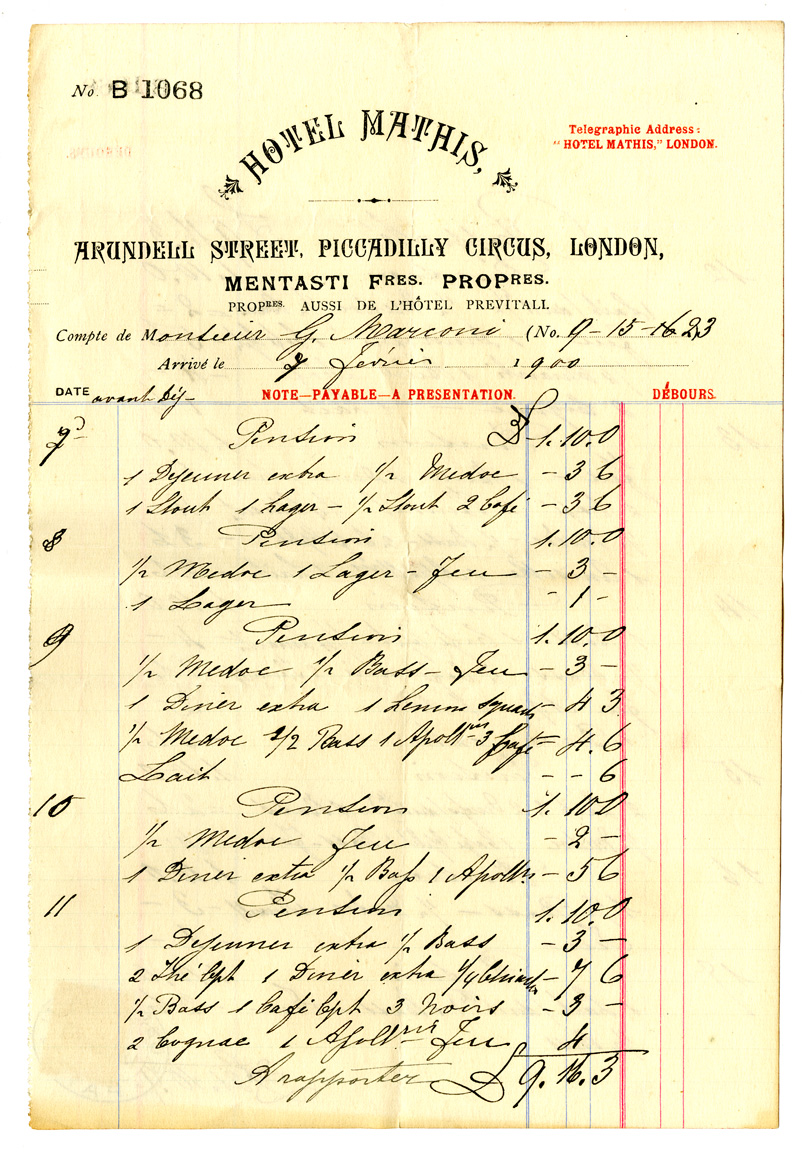 No. B 1068
HOTEL MATHIS,
Telegraphic Address:
"HOTEL MATHIS," LONDON.
ARUNDELL STREET, PICCADILLY CIRCUS, LONDON,
MENTASTI FRES. PROPRES.
PROPRES. AUSSI DE L'HÔTEL PREVITALI.
Compte de Monsieur G. Marconi (No. 9-15-1623
Arrivé le 7 Février 1900
DATE avant Déj- NOTE—PAYABLE—A PRESENTATION. DÉBOURS.
7 Pension £ 1.10.0
1 Dejeuner extra 1/2 Medoc - 3 6
1 Stout 1 Lager - 1/2 Stout 2 Café - 3 6
8 Pension 1.10.0
1/2 Medoc 1 Lager - Feu - 3 -
1 Lager - 1 -
9 Pension 1.10.0
1/2 Medoc 1/2 Bass - Feu - 3 -
1 Diner extra 1 Lemon Squash - 4 3
1/2 Medoc 2/2 Bass 1 Apollris 3 Café - 4.6
Lait - - 6
10 Pension 1.10.0
1/2 Medoc Feu - 2 -
1 Diner extra 1/2 Bass 1 Apollris - 5 6
11 Pension 1.10.0
1 Dejeuner extra 1/2 Bass - 3 -
2 Thé Cpt 1 Diner extra 1/4 - 7 6
1/2 Bass 1 Café Cpt 3 Noirs - 3 -
2 Cognac 1 Apollris Feu 4
A rapporter £ 9.16.3